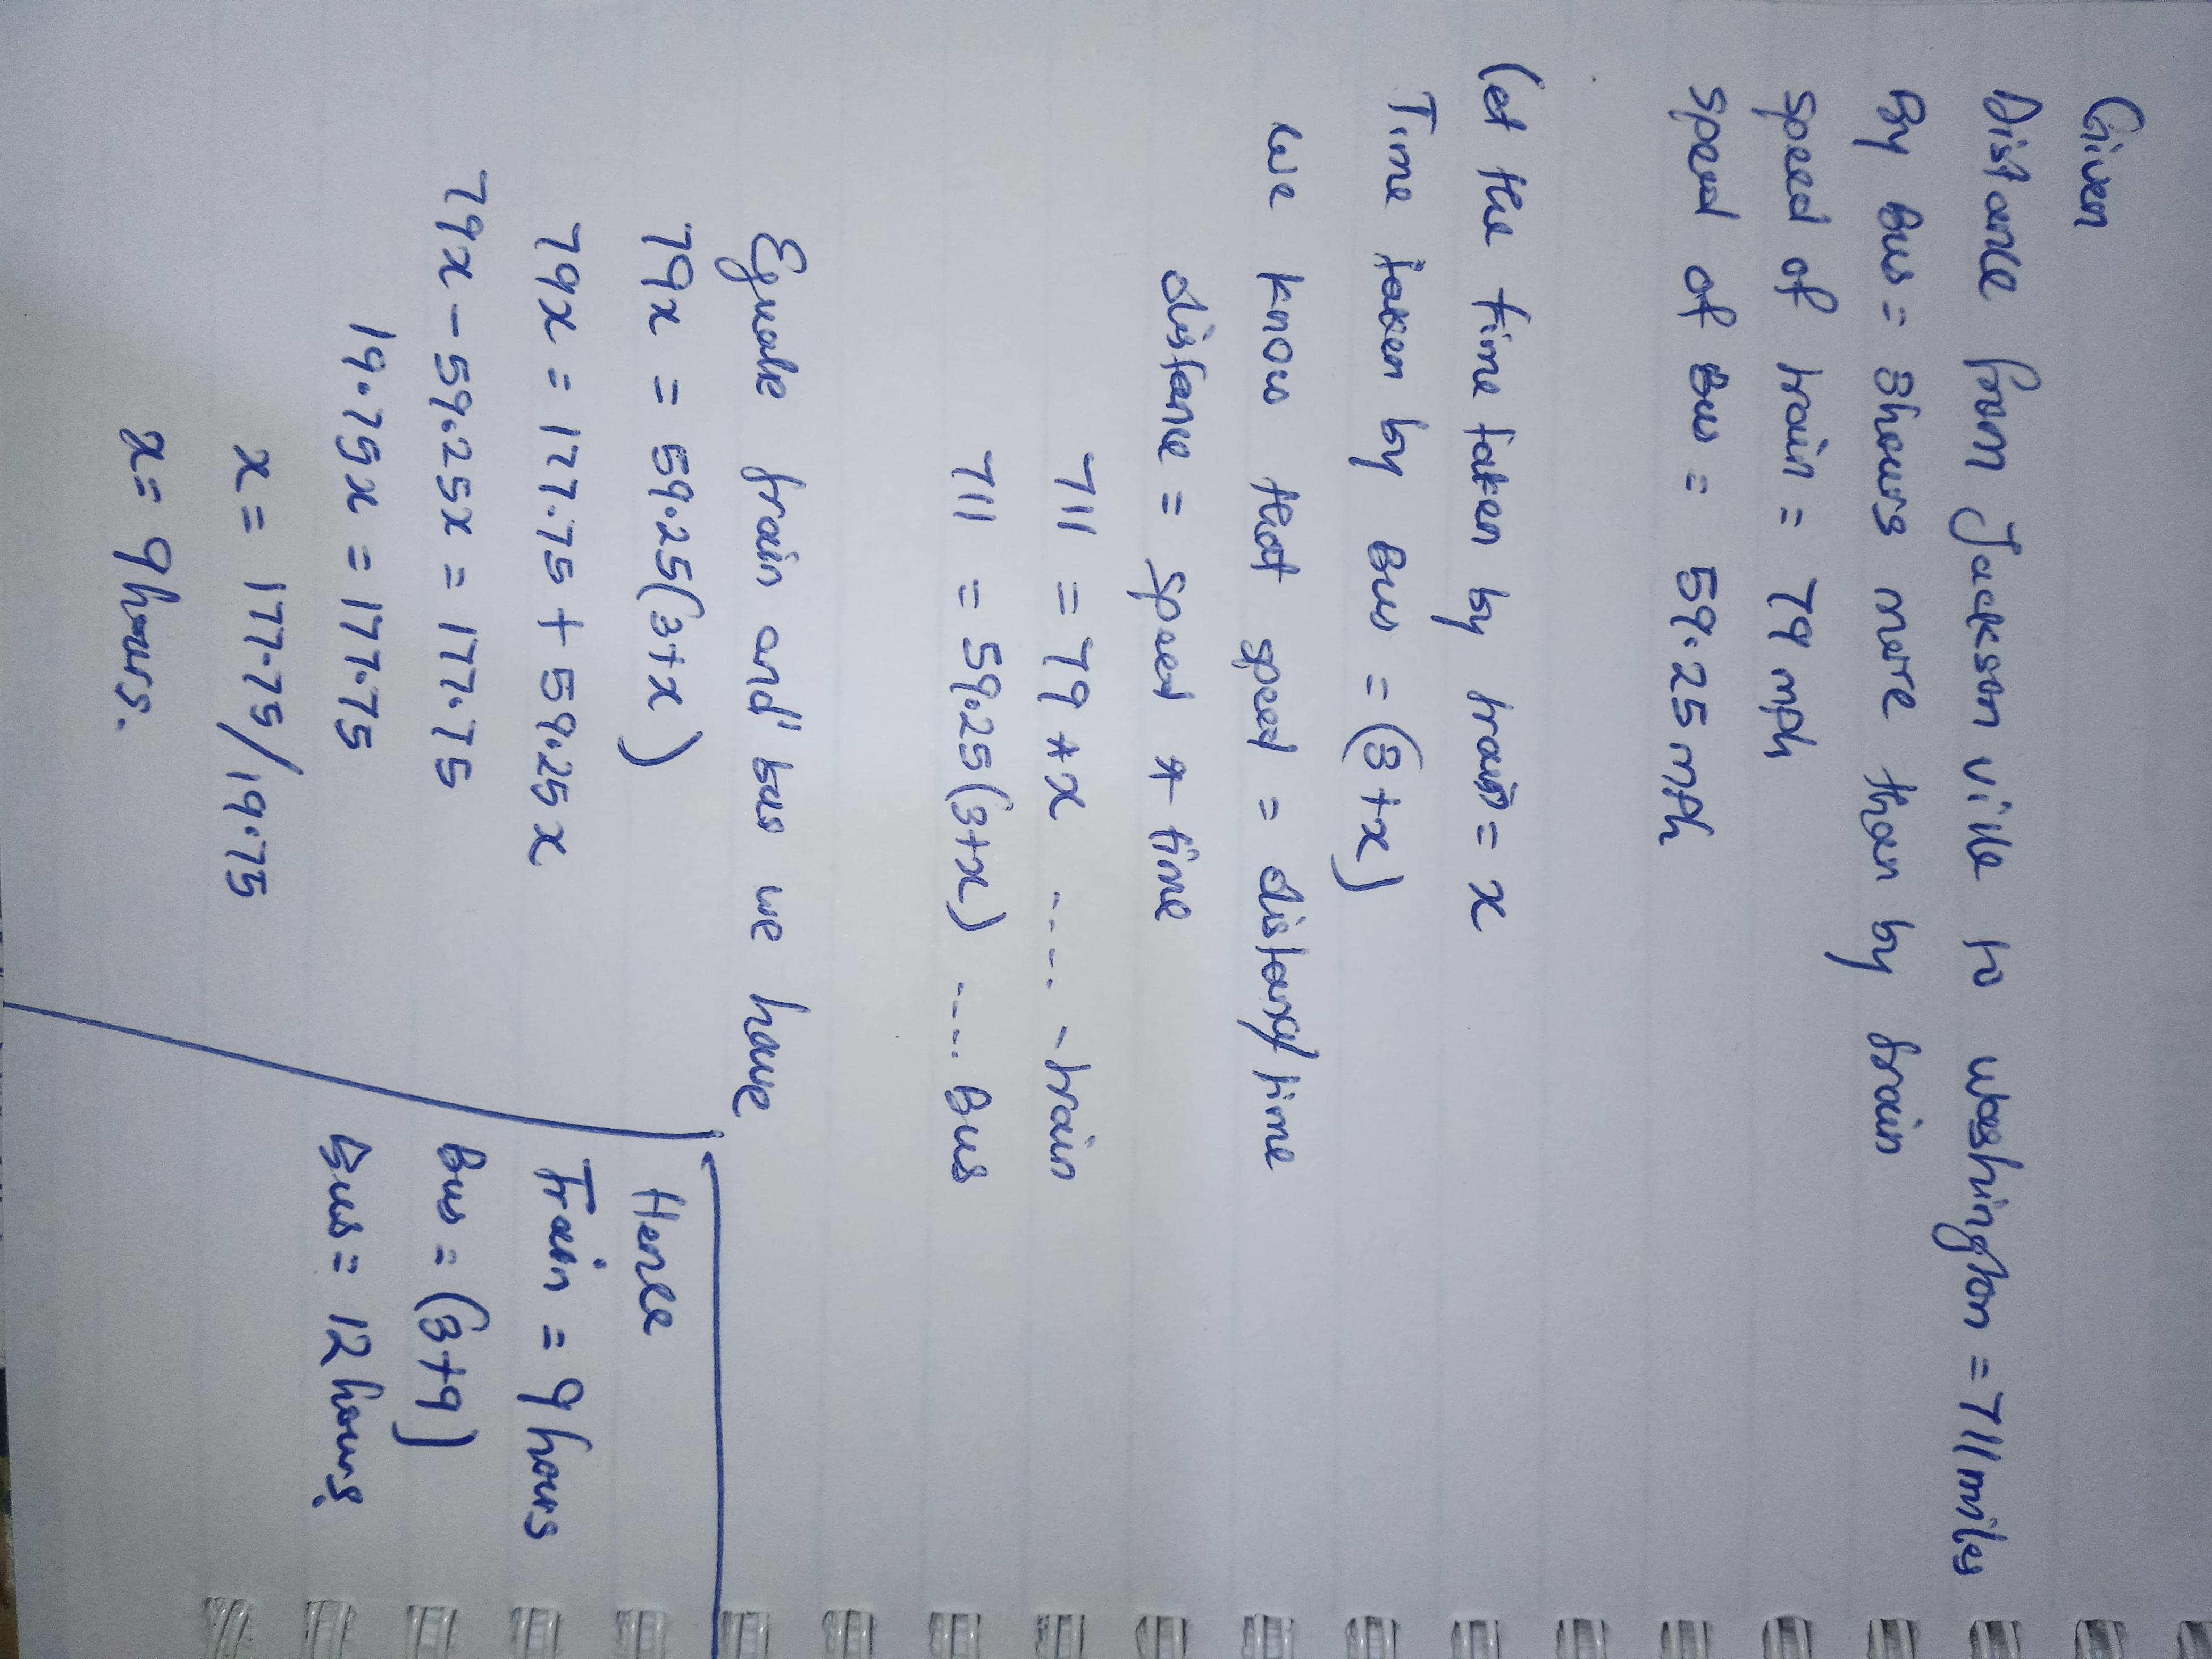 Given
Distance from Jacksonville to washington = 711 miles
By Bus = 3hours more than by train
Speed of train = 79 mph
Speed of Bus = 59.25 mph
Let the time taken by train = x
Time taken by Bus = (3+x)
we know that speed = distance/time
distance = speed * time
711 = 79 * x ..... train
711 = 59.25(3+x) .... Bus
Equate train and bus we have
79x = 59.25(3+x)
79x = 177.75 + 59.25x
79x - 59.25x = 177.75
19.75x = 177.75
x = 177.75/19.75
x = 9hours.
Hence
Train = 9hours
Bus = (3+9)
Bus = 12hours.